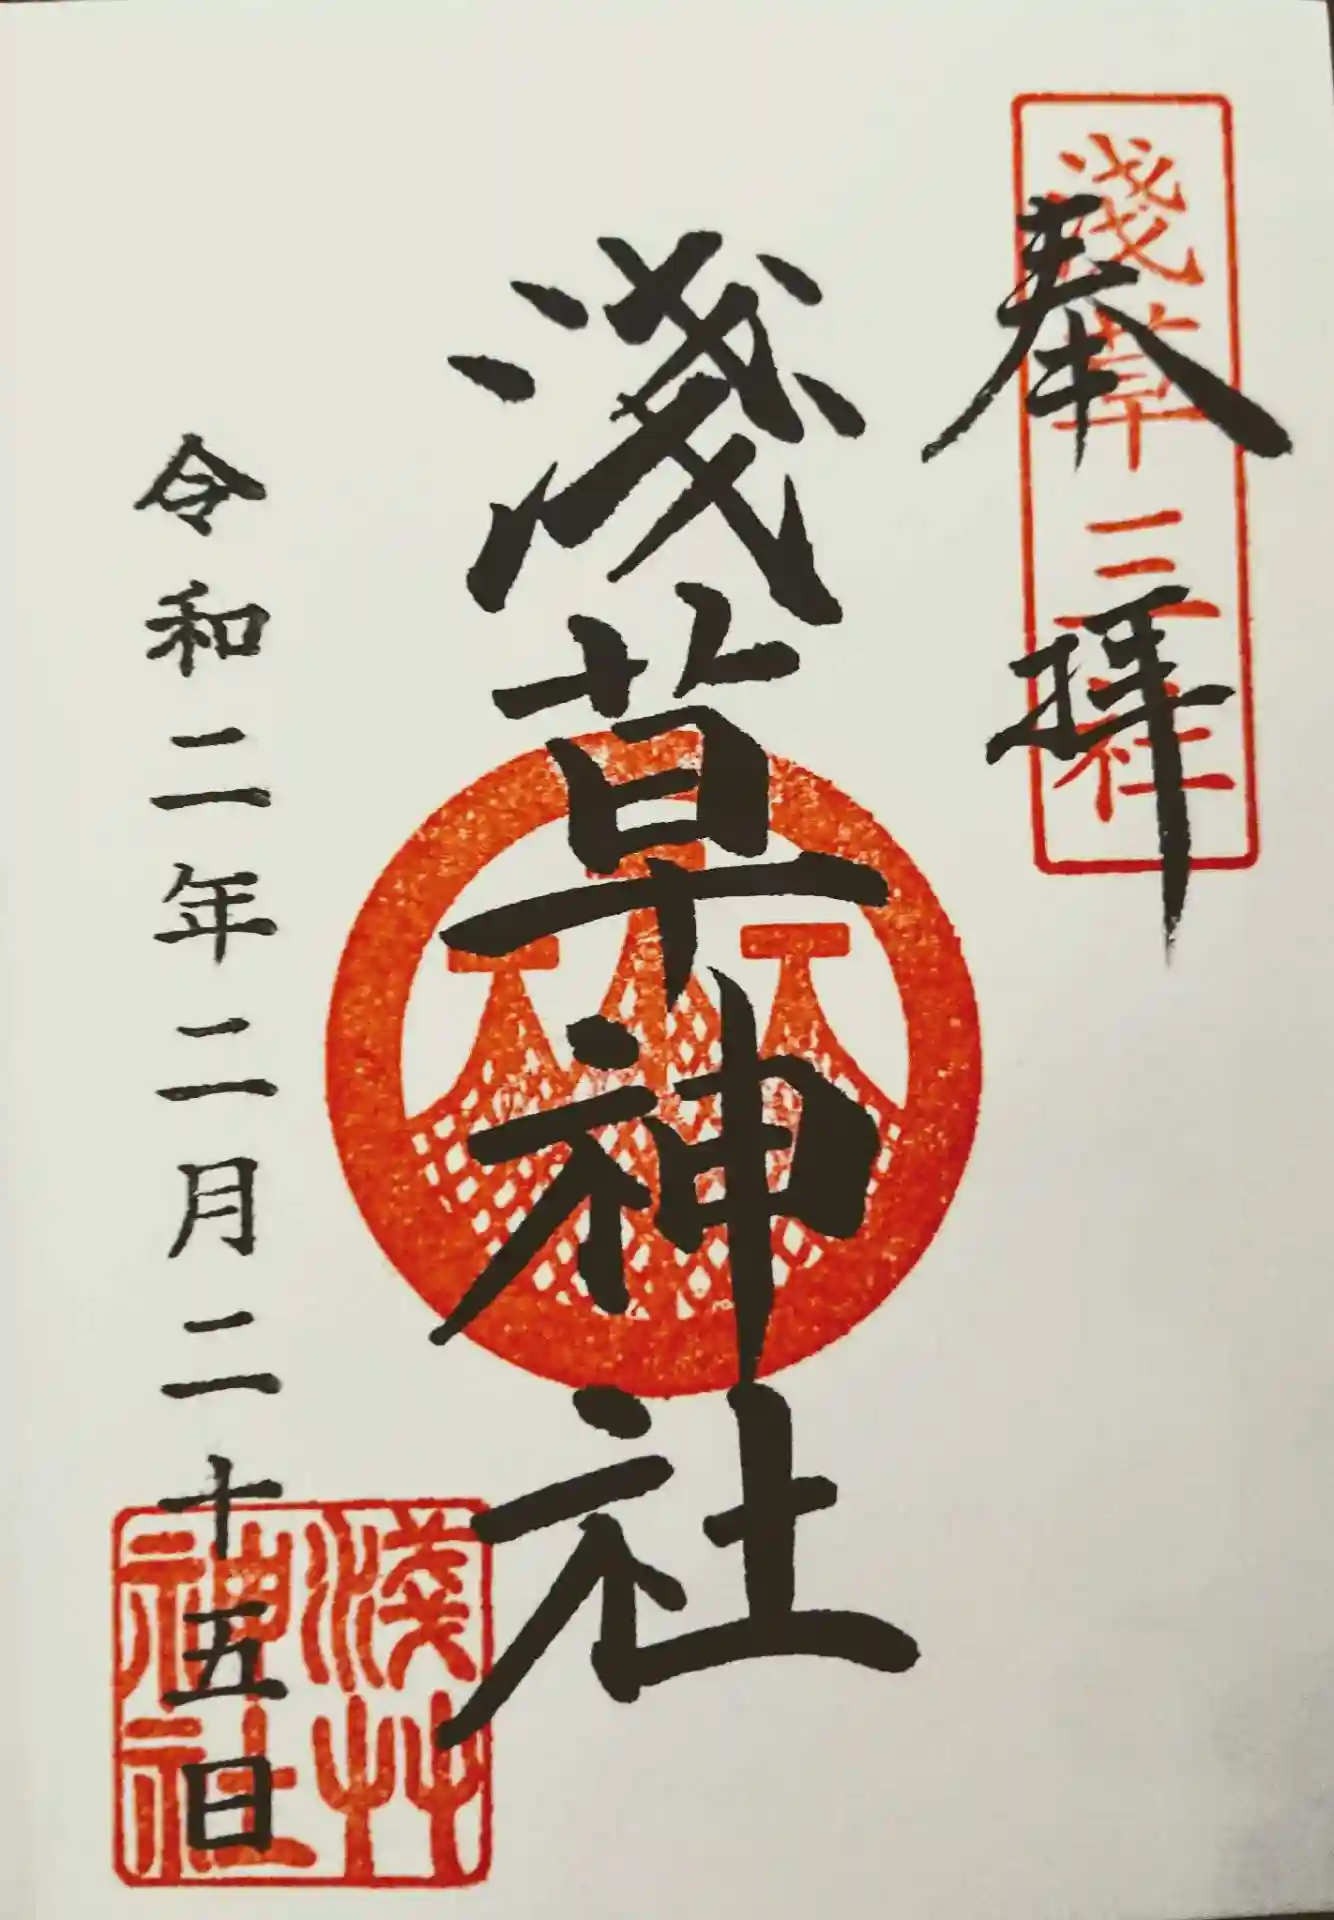 奉拝
淺草三社
淺草神社
令和二年二月二十五日
淺艸神社